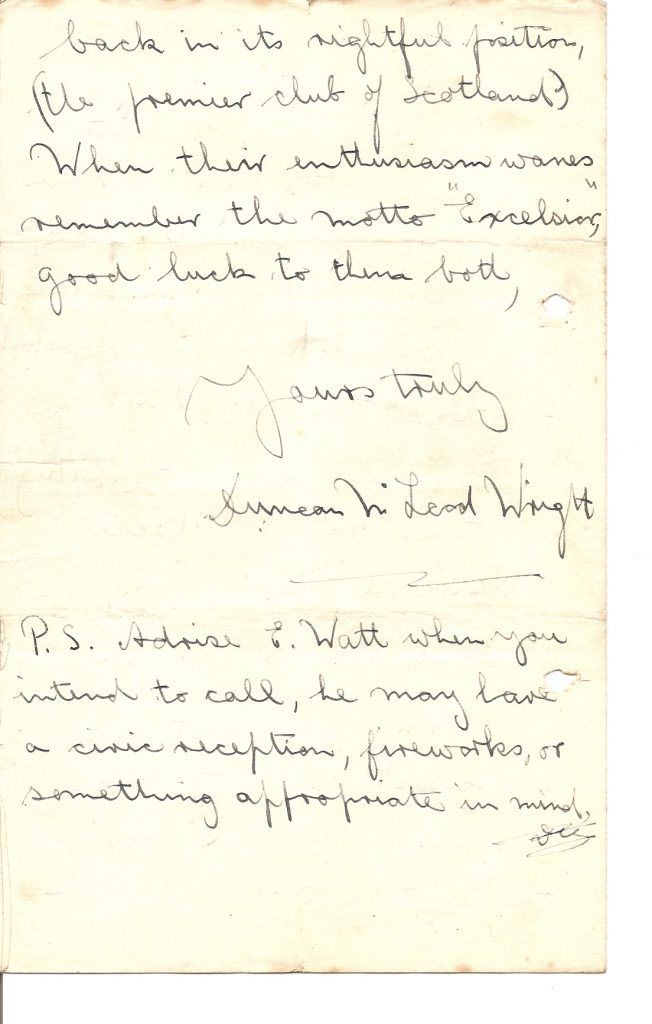 back in its rightful position,
(the premier club of Scotland)
When their enthusiasm wanes
remember the motto "Excelsior",
good luck to them both,
Yours truly
Duncan Mc Leod Wright
P.S. Advise E. Watt when you
intend to call, he may have
a civic reception, fireworks, or
something appropriate in mind.